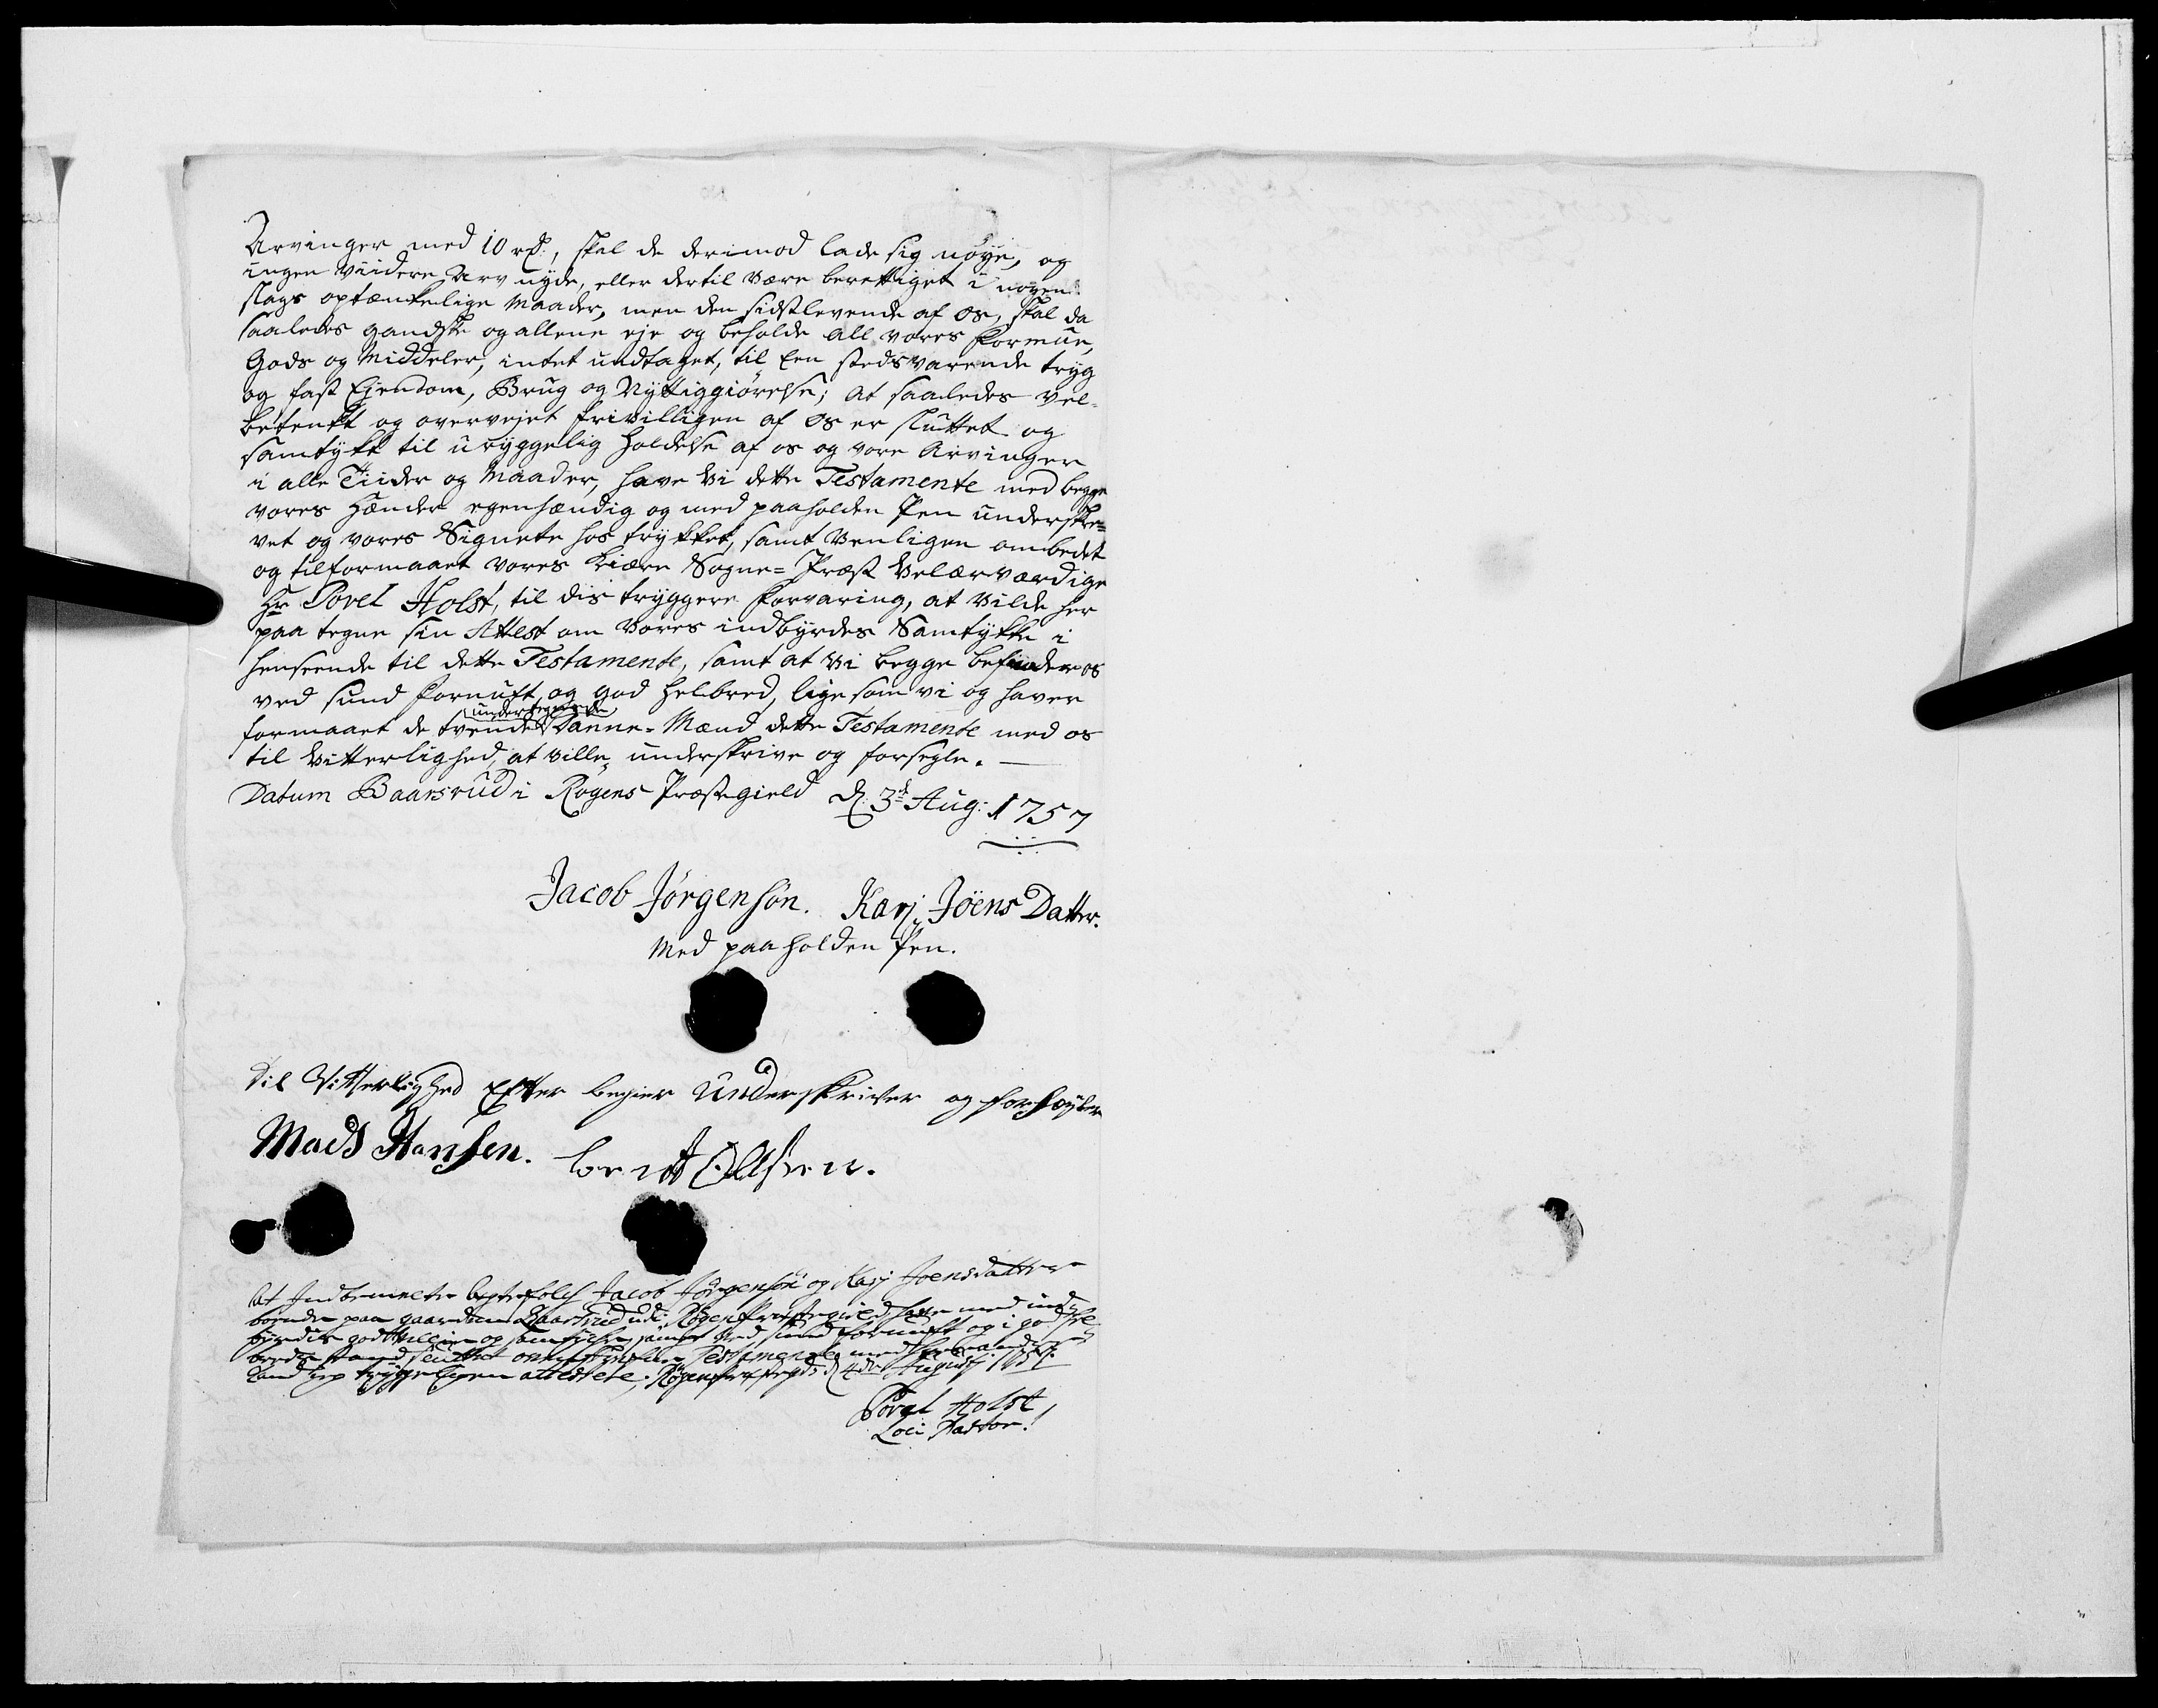 Arvinger med 10 rd:, skal de derimod lade sig nøye, og
ingen viidere Arv nyde, eller dertil være berettiget i nogen
slags optænkelige Maader, men den sidstlevende af os, skal da
saaledes gandske og allene eje og beholde all vores Formue,
Gods og Middeler, intet undtaget, til Een stedsvarende tryg
og fast Ejendom, Brug og Nyttiggiørelse; At saaledes vel-
betenkt og overvejet frivilligen af os er sluttet og
samtykt til u ryggelig holdelse af os og vore Arvinger
i alle Tiider og Maader, have Vi dette Testamente med begge
vores Hænder egenhændig og med paaholden Pen underskre-
vet og vores Signete hos trykket, samt Venligen ombedet
og tilformaaet vores kiære Sogne-Præst Velærværdige
Hr Povel Holst, til dis tryggere Forvaring, at vilde her
paa tegne sin Attest om Vores indbyrdes Samtykke i
henseende til dette Testamente, samt at Vi begge befinder os
ved sund Fornuft og god Helbred, lige som vi og haver
formaaet de tvende undertegnede Danne-Mænd dette Testamente med os
til Vitterlighed, at ville underskrive og forsegle.
Datum Baarsrud i Røgens Præstegield d. 3d Aug: 1757
Jacob Jørgensøn. Karj Jöens Datter.
Med paaholden Pen.
Til Vitterlighed Efter begier Underskriver og forseyler
Mads Hansen. bentt Ollsen.
At Indbemelte Egtefolch Jacob Jörgensön og Karj Joensdatter
boende paa gaarden Baarsrud udi Røgen Præstegield, have med ind-
byrdes godtvillie og samtyche, samt ved sund fornuft og i god hel-
breds stand sluttet Testamente med hverandre
attestere. Røgens Præstegd: d 4de Augusti 1757.
Povel Holst
Loci Pastor.